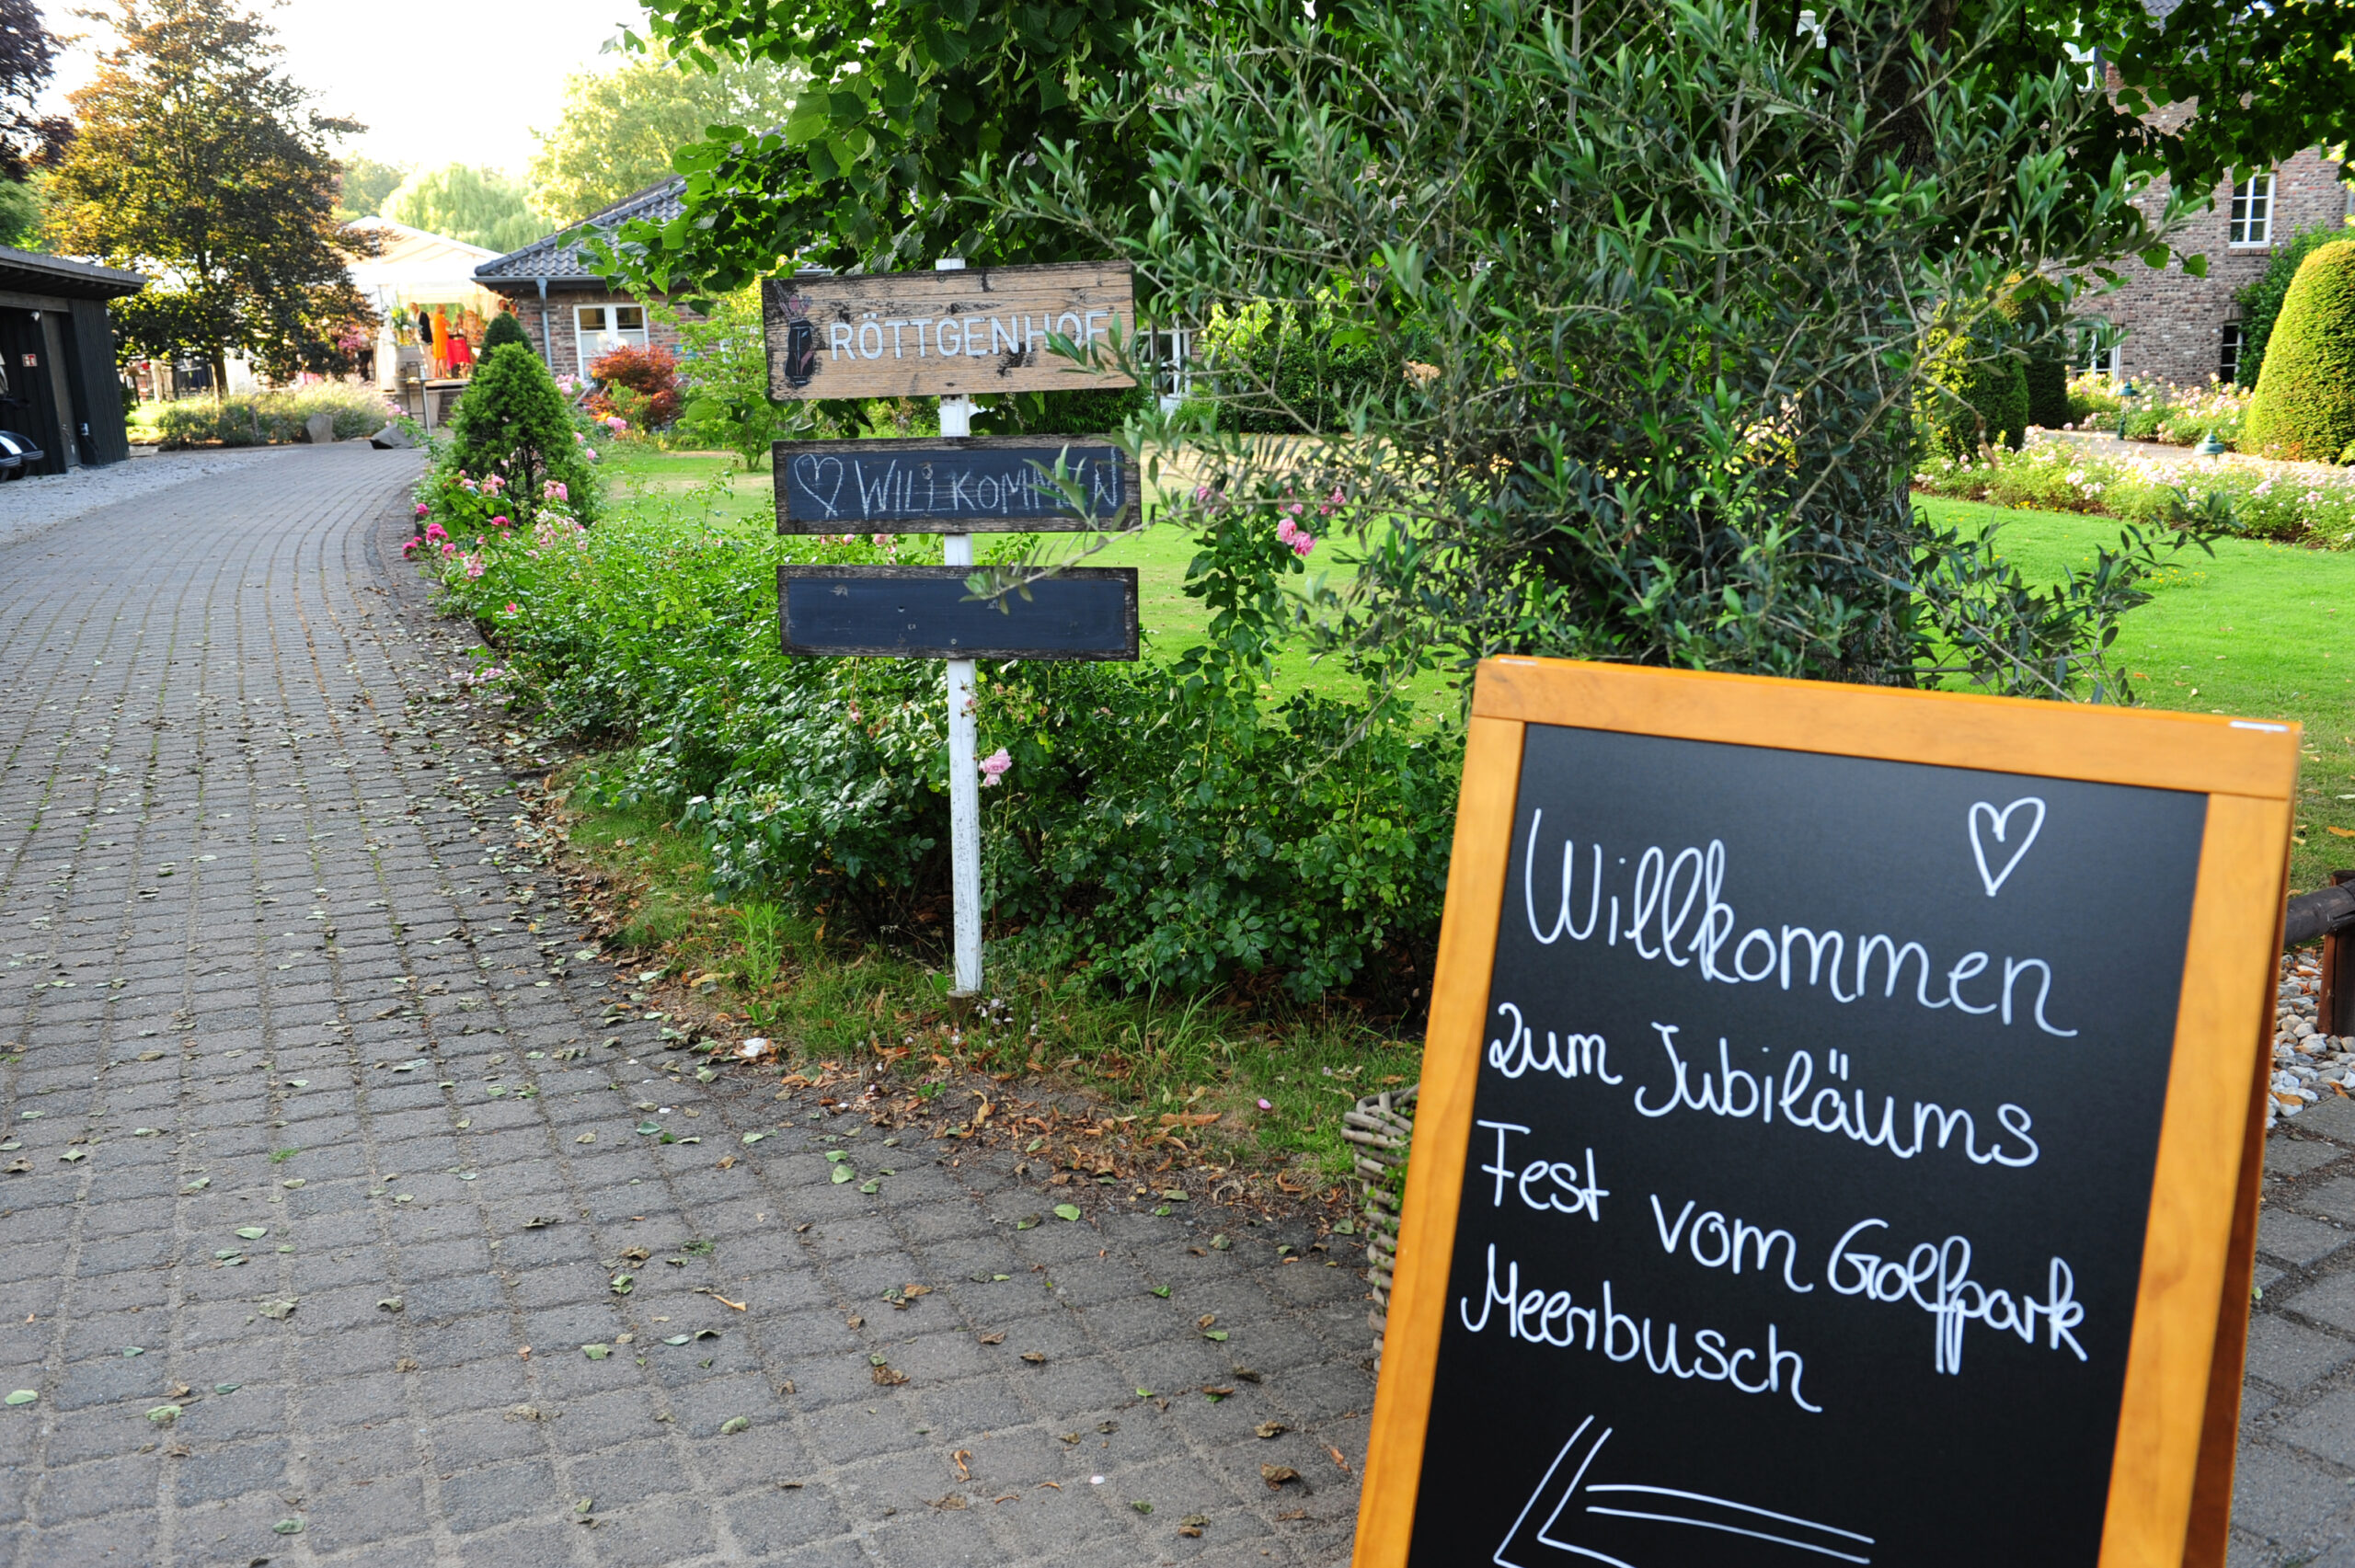 RÖTTGENHOF
WILLKOMMEN
Willkommen
zum Jubiläums
Fest vom Golfpark
Meerbusch